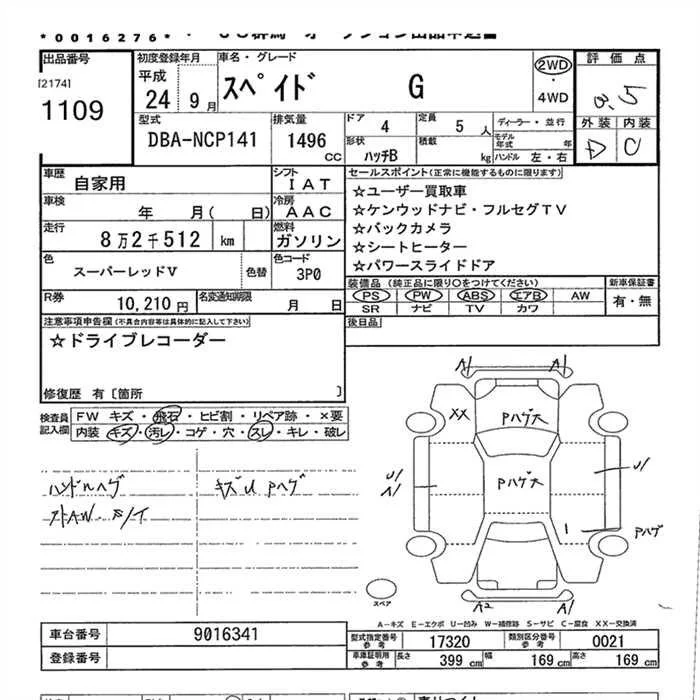 *0016276*
出品番号
[2174]
1109
初度登録年月
平成
24 9月
車名・グレード
スペイド G
2WD
・
4WD
評価点
3.5
外装 内装
D C
型式
DBA-NCP141
排気量
1496
CC
ドア 4
定員 5 人
ディーラー・並行
モデル年式 年
形状 ハッチB
積載 kg
ハンドル 左・右
車歴 自家用
シフト IAT
車検 年 月( 日)
冷房 AAC
走行 8万2千512 km
燃料 ガソリン
色 スーパーレッドV
色替
色コード 3P0
R券 10,210円
名変通知期限 月 日
セールスポイント(正常に機能するものに限ります)
☆ユーザー買取車
☆ケンウッドナビ・フルセグTV
☆バックカメラ
☆シートヒーター
☆パワースライドドア
装備品 (純正品に限り○をつけてください)
新車保証書
PS PW ABS エアB AW
SR ナビ TV カワ
有・無
後日品
注意事項申告欄(不具合内容等は具体的に記入して下さい)
☆ドライブレコーダー
修復歴 有〔箇所 〕
検査員記入欄
FW キズ・飛石・ヒビ割・リペア跡・×要
内装 キズ・汚レ・コゲ・穴・スレ・キレ・破レ
ハンドルハゲ
キズU Pハゲ
A1 A1
XX
Pハゲ大
Pハゲ大
U1
A1
U1
Pハゲ
A2 A1
スペア
A-キズ E-エクボ U-凹み W-補修跡 S-サビ C-腐食 XX-交換済
車台番号 9016341
登録番号
型式指定番号参考 17320
類別区分番号参考 0021
車庫証明用参考
長さ 399 cm
幅 169 cm
高さ 169 cm